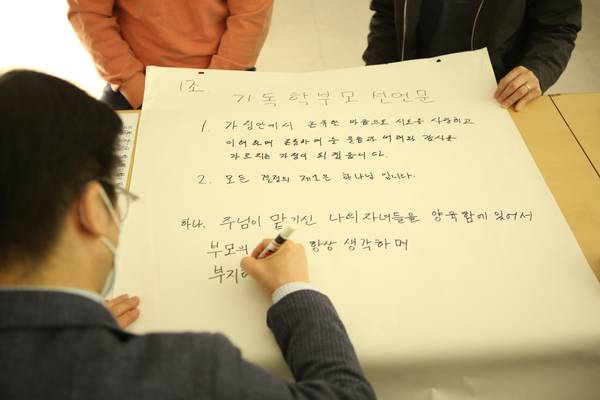 1조
기독학부모 선언문
1. 가정안에서 온전한 마음으로 서로를 사랑하고
이해하며 존중하며 늘 웃음과 어려와 감사를
가르치는 가정이 되겠습니다.
2. 모든 결정의 제1은 하나님 입니다.
하나. 주님이 맡기신 나의 자녀들을 양육함에 있어서
부모의 항상 생각하며
부지